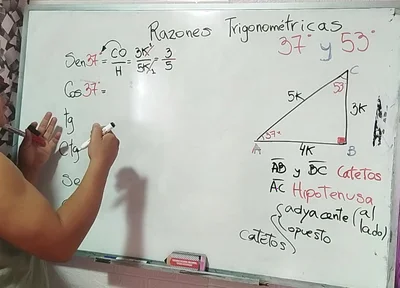 Razones Trigonométricas
37° y 53°
Sen 37° = CO/H = 3K/5K = 3/5
Cos 37° =
tg
Ctg
Se
C
53°
5K
3K
37°
A
4K
B
AB y BC Catetos
AC Hipotenusa
Catetos { adyacente (al lado)
opuesto